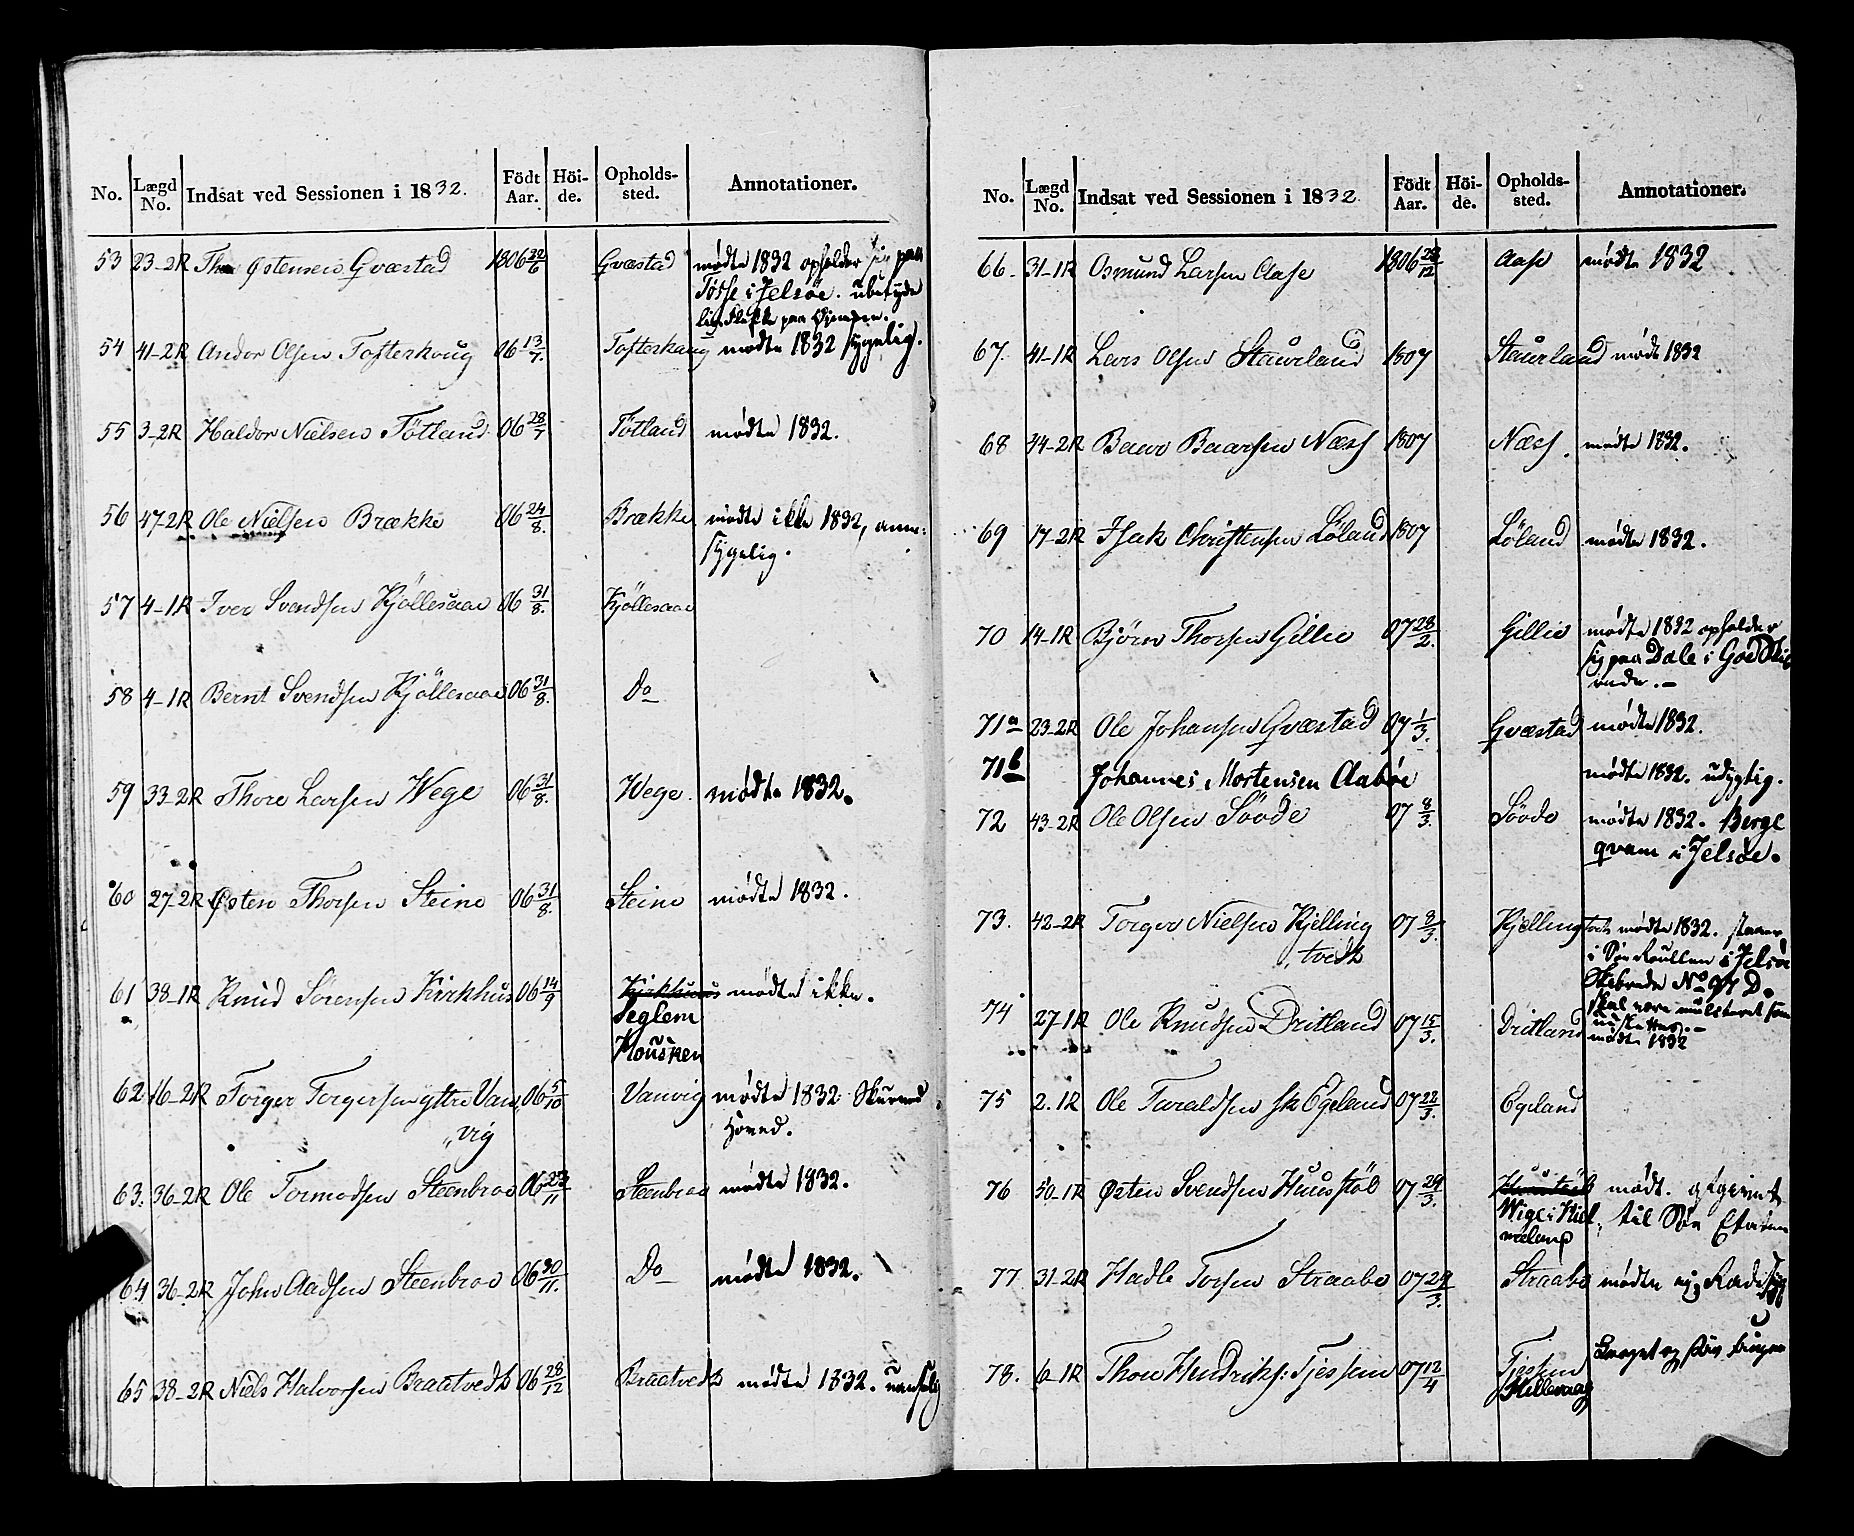 No. Lægd No. Indsat ved Sessionen i 1832. Födt Aar. Höi-de. Opholds-sted. Annotationer.
53 23-2R Thor Østensen Qvæstad 1806 22/6 Qvæstad mødte 1832 opholder sig paa
Tøsse i Jelsøe. ubetyde
lig Plette paa Øjnene.
54 41-2R Andor Olsen Tofterhoug 06 13/7. Tofterhaug mødte 1832 sygelig.
55 3-2R Haldor Nielsen Tötland 06 28/7 Tötland mødte 1832.
56 47-2R Ole Nielsen Brække 06 24/8. Brække mødte ikke 1832, anm:
sygelig.
57 4-1R Iver Svendsen Kjöllesaae 06 31/8. Kjöllesaae
58 4-1R Bernt Svendsen Kjöllesaae 06 31/8. Do
59 33-2R Thore Larsen Wege 06 31/8. Wege. mødte 1832.
60 27-2R Østen Thorsen Steine 06 31/8. Steine mødte 1832.
61 38-1R Knud Sörensen Kirkhus 06 14/9 Kirkhuus mødte ikke.
Seglem
Housken
62 16-2R Torger Torgersen yttre Van 06 5/10 Vanvig mødte 1832. Skurved
„vig Hoved.
63. 36-2R Ole Tormodsen Steenbroe 06 23/11 Steenbroe mødte 1832.
64 36-2R John Aadsen Steenbroe 06 30/11. Do mødte 1832.
65 38-2R Niels Halvorsen Braatvedt 06 28/12 Braatvedt mødte 1832. uanselig
No. Lægd No. Indsat ved Sessionen i 1832. Födt Aar. Höi-de. Opholds-sted. Annotationer.
66 31-1R Osmund Larsen Aase 1806 28/12 Aase mødte 1832
67. 41-1R Lars Olsen Staurland 1807 Staurland mødt 1832
68 44-2R Baar Baarsen Næss 1807 Næss. mødte 1832.
69 17-2R Isak Christensen Löland 1807 Löland mødte 1832.
70 14-1R Björen Thorsen Gillie 07 28/2. Gillie mødte 1832 opholder
sig paa Dale i
71a 23-2R Ole Johansen Qvæstad 07 1/3. Qvæstad mødte 1832.
71b Johannes Mortensen Aabøe mødte 1832. udygtig.
72 43-2R Ole Olsen Söode 07 8/3. Söode mødte 1832. Berge
qvam i Jelsøe.
73. 42-2R Torger Nielsen Kjelling 07 8/3. Kjellingtvedt mødte 1832. staaer
tvedt i Söe Roullen i Jelsøe
Skibrede No 97 D.
74 27-1R Ole Knudsen Dritland 07 15/3. Dritland skal være mulcteret som
mødte 1832
75 2.1R Ole Taraldsen Egeland 07 22/3. Egeland
76 50-1R Østen Svendsen Huusstöl 07 29/3. Huustöl mødt.
Wige i Hiel til Söe Etaten
meland
77 31-2R Hadle Torsen Straabe 07 29/3. Straabe mødte ej;
78. 6-1R Thore Hendriks: Tjessem 07 12/4 Tjessem
Hillevaag